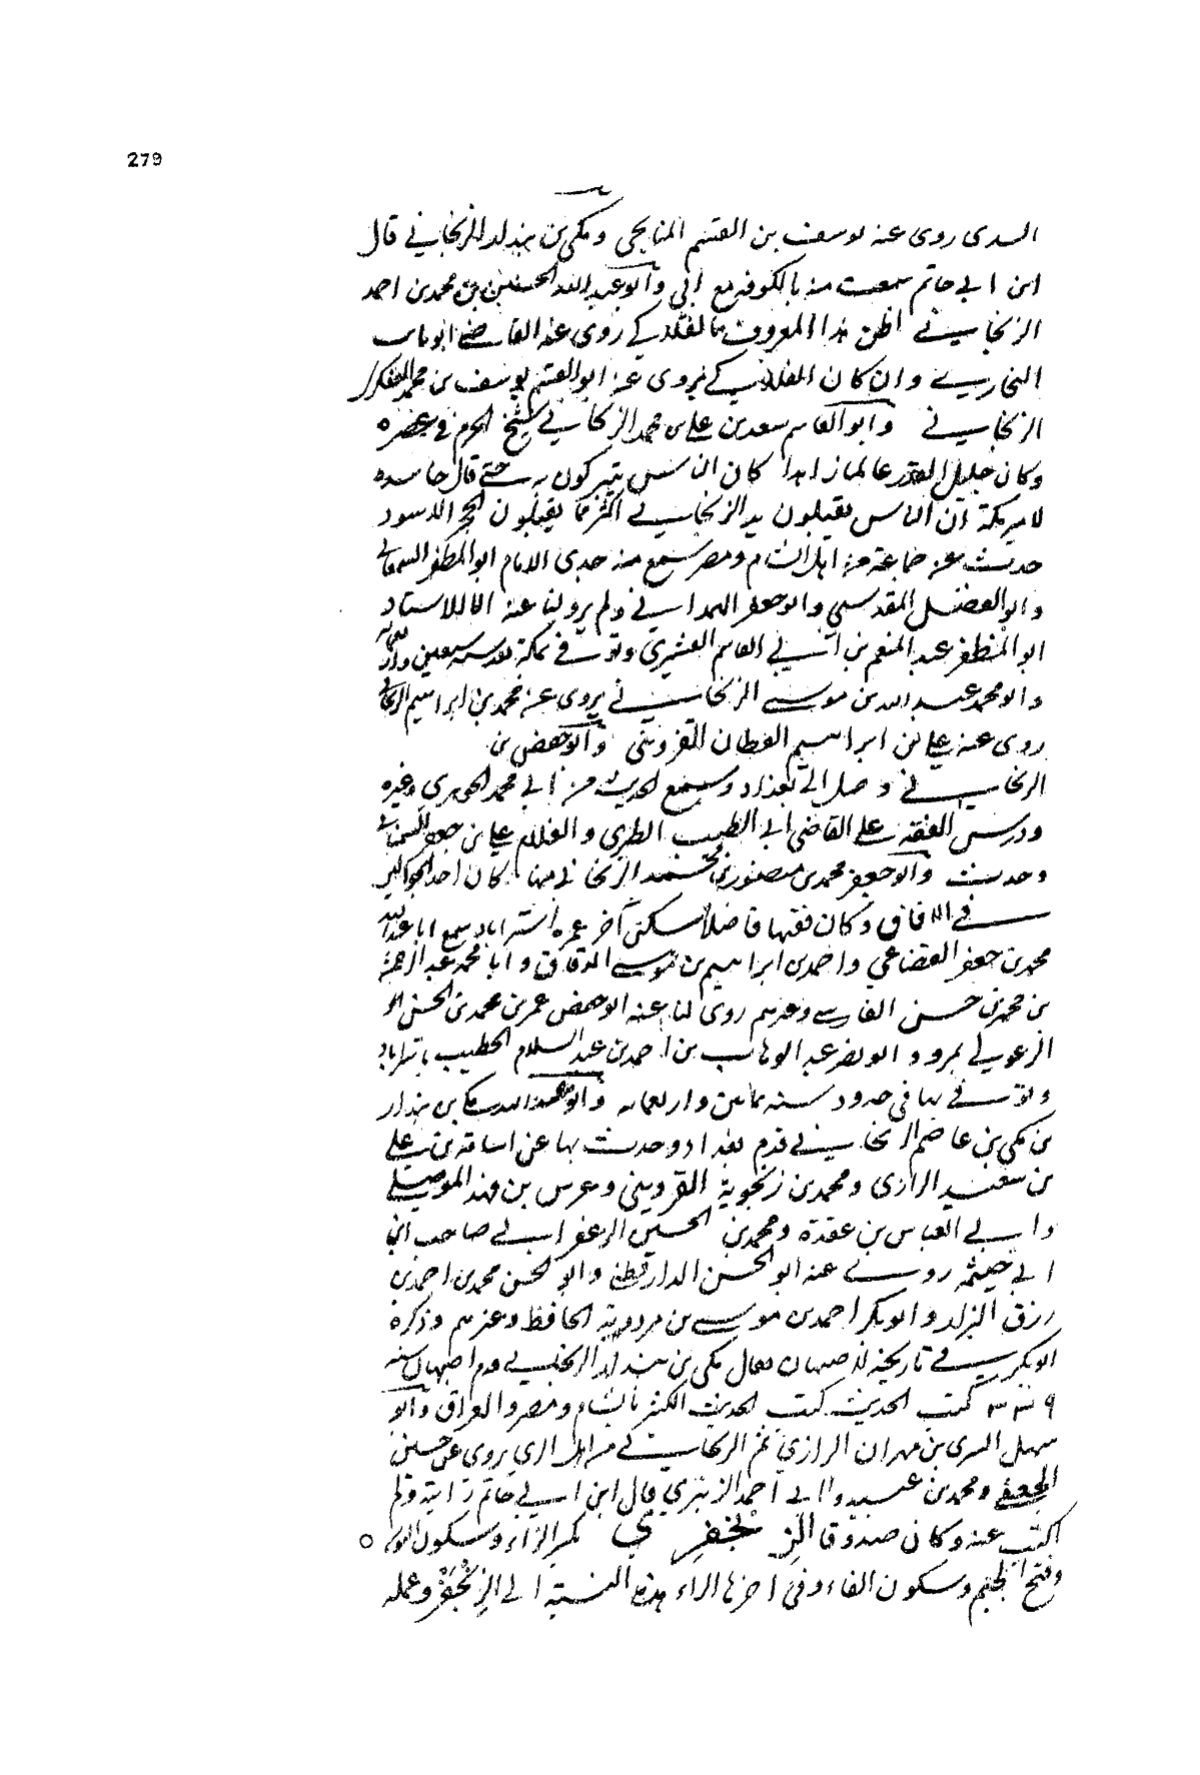 279
السدى روى عنه يوسف بن القسم الميانجى ومكى بن بندار الزنجاني قال
ابن ابي حاتم سمعت منه بالكوفه مع ابي وابو عبد الله الحسين بن محمد بن احمد
الزنجاني اظن هذا المعروف بالفلاكي روى عنه القاضي ابو
وان كان الفلاكي يروى عنه ابو القسم يوسف بن محمد
الزنجاني وابو القاسم سعد بن على بن محمد الزنجاني شيخ الحرم في عصره
وكان جليل القدر عالما زاهدا كان الناس يتبركون به حتى قال حاسده
لامير مكة ان الناس يقبلون يد الزنجاني اكثر مما يقبلون الحجر الاسود
حدث عن جماعة من اهل الشام ومصر سمع منه جدى الامام ابو المظفر السمعاني
وابو الفضل المقدسي وابو جعفر الهمداني ولم يرو لنا عنه الا الاستاد
ابو المظفر عبد المنعم بن ابي القاسم القشيري وتوفي بمكة بعد سنة سبعين واربعمائه
وابو محمد عبد الله بن موسى الزنجاني يروى عن محمد بن ابراهيم
روى عنه على بن ابراهيم القطان القزويني وابو حفص بن
الزنجاني وصل الى بغداد وسمع الحديث من ابي محمد الجوهرى وغيره
ودرس الفقه على القاضي ابي الطيب الطبري والكلام على بن جعفر السمناني
وحدث وابو جعفر محمد بن منصور بن الزنجاني منها كان احد الجوالين
في الافاق وكان فقيها فاضلا سكن آخر عمره استراباد سمع ابا عبد الله
محمد بن جعفر القضاعي واحمد بن ابراهيم بن موسى الدقاق وابا محمد عبد الرحمن
بن محمد بن حسن الفارسي وغيرهم روى لنا عنه ابو حفص عمر بن محمد بن الحسن
بمرو وابو نصر عبد الوهاب بن احمد بن عبد السلام الخطيب باستراباد
وتوفي بها في حدود سنه ثمانين واربعمائه وابو عبد الله مكى بن بندار
بن مكى بن عاصم الزنجاني قدم بغداد وحدث بها عن اسامة بن على
بن سعيد الرازى ومحمد بن زنجوية القزويني وعرس بن فهد الموصلي
وابي العباس بن عقدة ومحمد بن الحسين الزعفراني صاحب ابن
ابي خيثمه روى عنه ابو الحسن الدارقطني وابو الحسن محمد بن احمد بن
رزق البزاز وابو بكر احمد بن موسى بن مردويه الحافظ وغيرهم وذكره
ابو بكر في تاريخه لاصبهان فقال مكى بن بندار الزنجاني قدم اصبهان سنه
كتب الحديث كتب الحديث الكثير بالشام ومصر والعراق وابو
سهل السرى بن مهران الرازي ثم الزنجاني من اهل الري يروى عن حسين
الجعفي ومحمد بن عبيد وابي احمد الزبيري قال ابن ابي حاتم رايته ولم
اكتب عنه وكان صدوقا الزنجفري بكسر الزاء وسكون النون
وفتح الجيم وسكون الفاء وفي اخرها الراء هذه النسبة الى الزنجفر وعمله